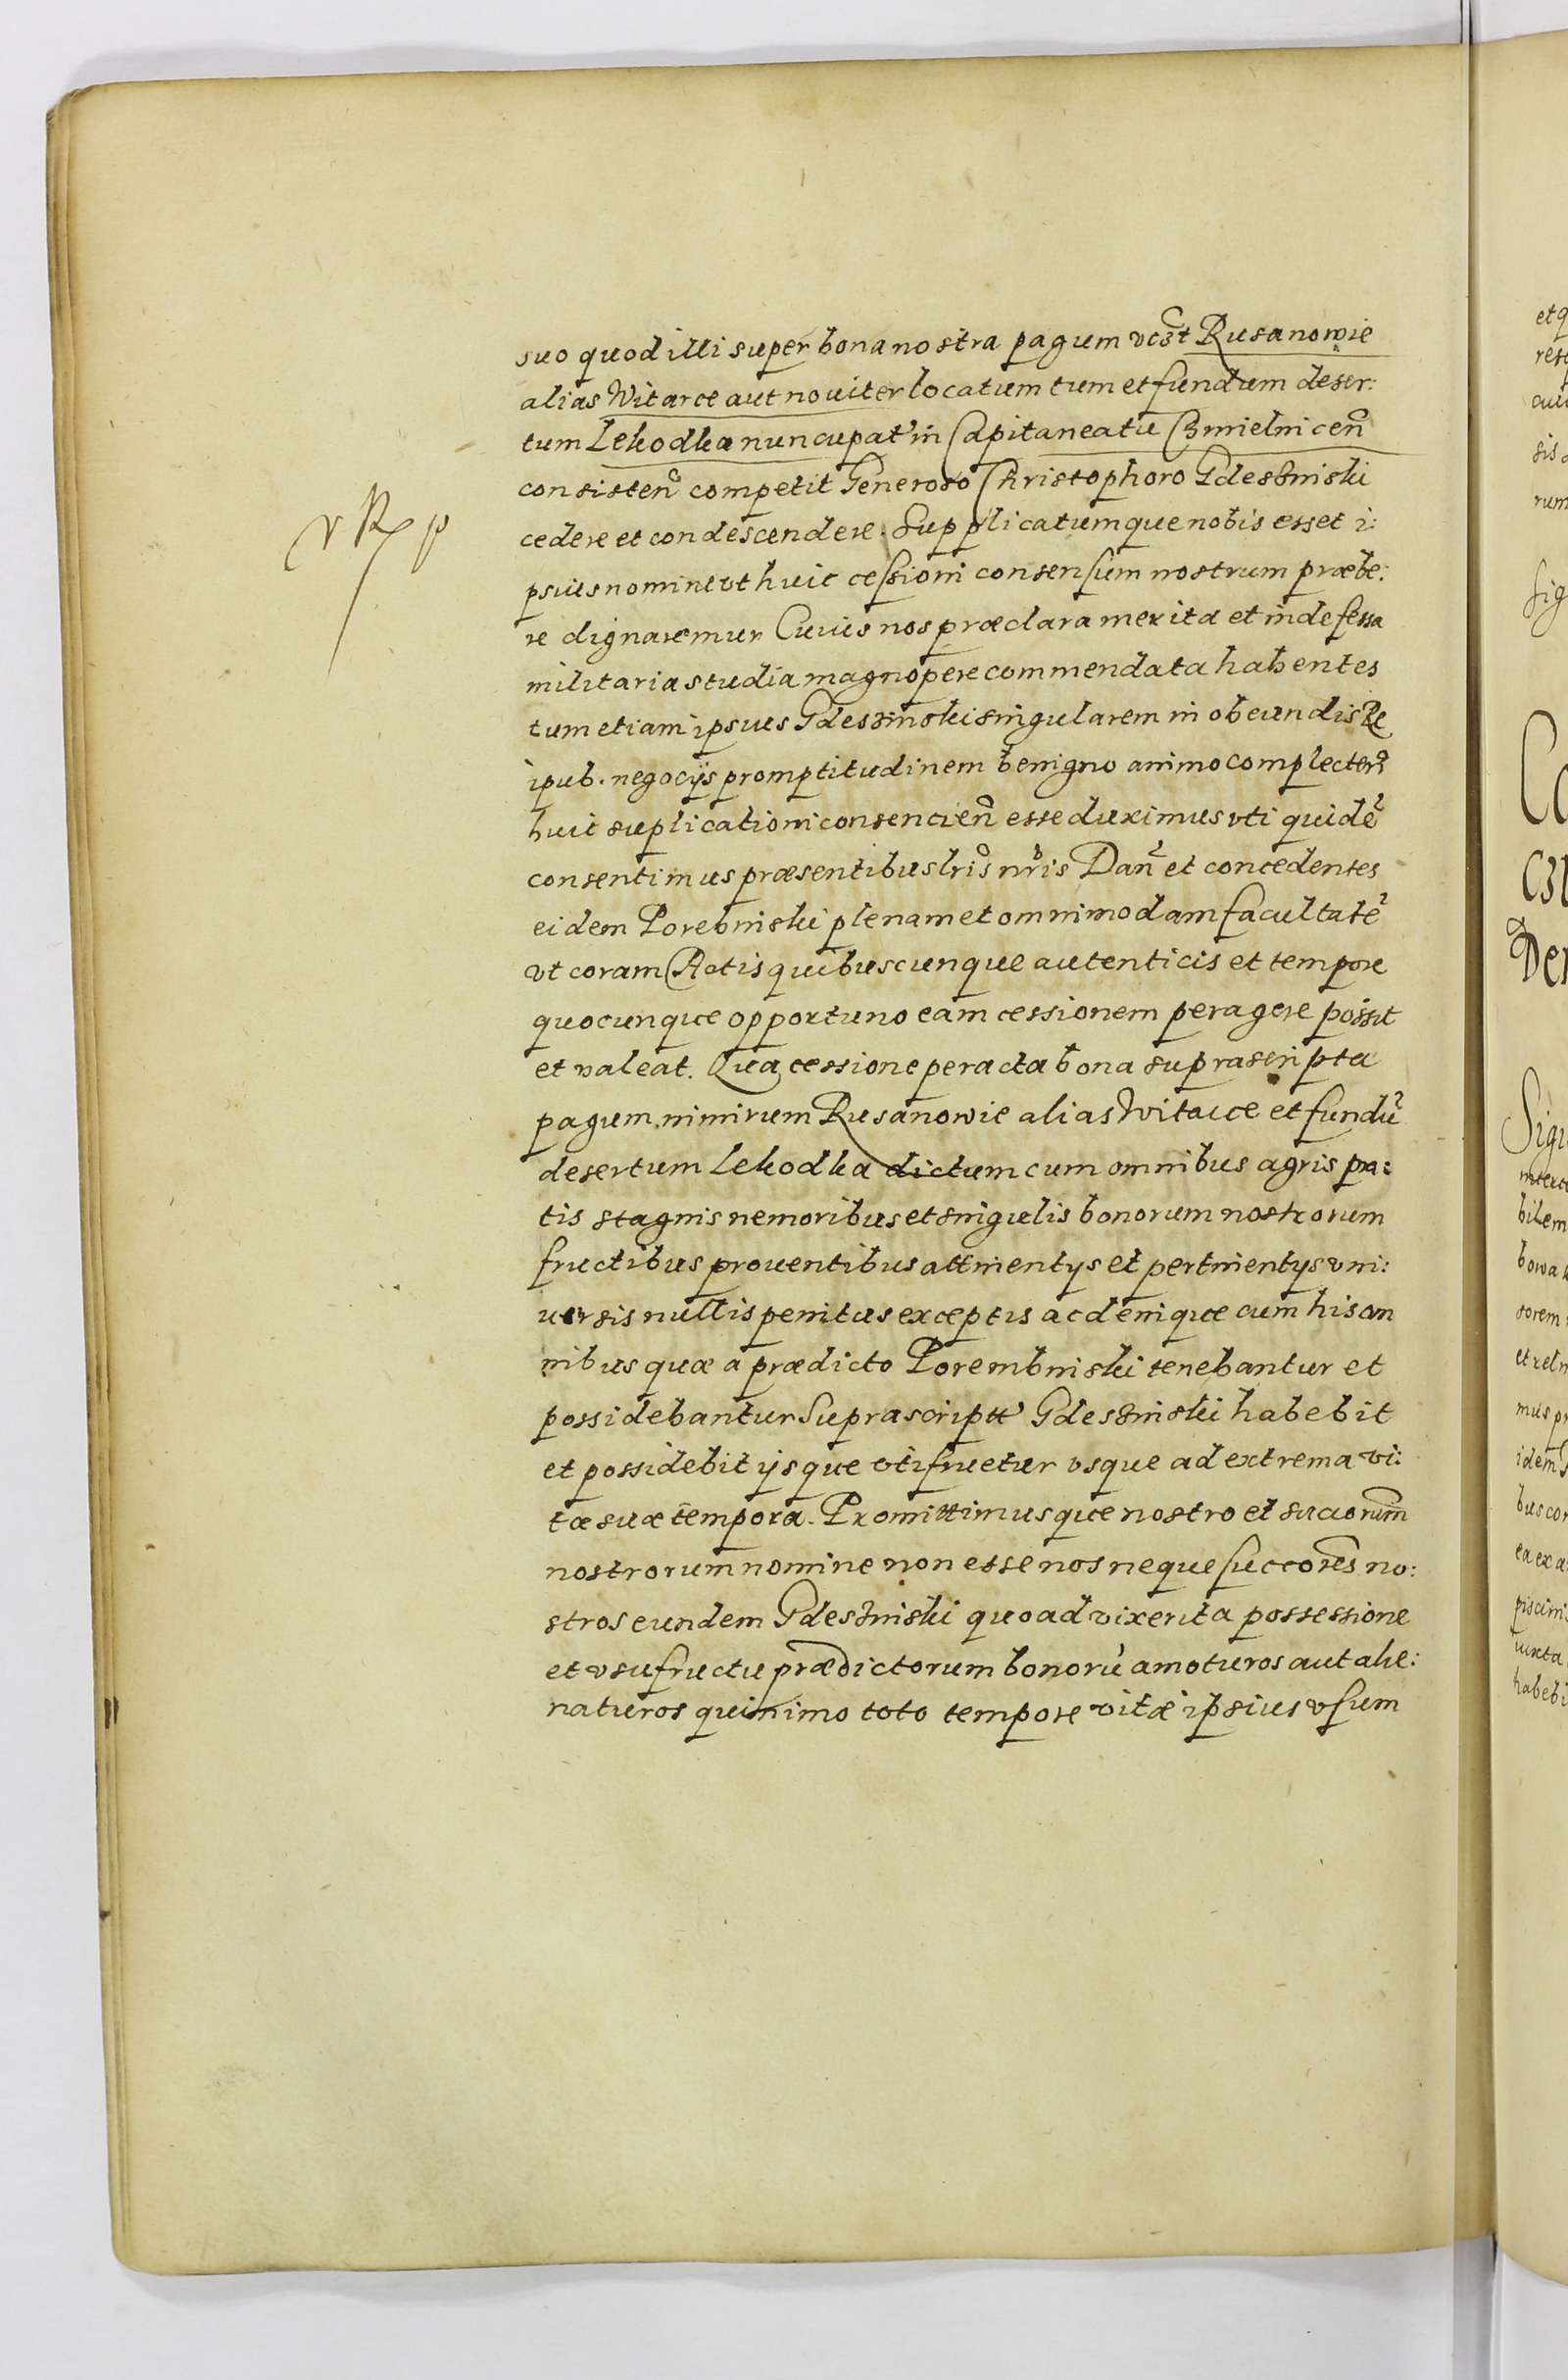 suo quod illi super bona nostra pagum vczt Rusanowie
alias Witarce aut nouiter locatum tum et fundum deser:
tum Lekodka nuncupat in Capitaneatu Chmielnicen
consisten competit Generoso Christophoro Gdeszinski
cedere et condescendere. Supplicatumque nobis esset i:
psius nomine vt huic cessioni consensum nostrum præbe:
re dignaremur Cuius nos præclara merita et indefessa
militaria studia magnopere commendata habentes
tum etiam ipsius Gdeszinski singularem in obeundis Re
ipub. negocijs promptitudinem benigno animo complecten
huic suplicationi consencien esse duximus vti quidē
consentimus præsentibus lris nris Dan et concedentes
eidem Porebniski plenam et omnimodam facultatē
vt coram Actis quibuscunque autenticis et tempore
quocunque opportuno eam cessionem peragere possit
et valeat. Qua cessione peracta bona suprascripta
pagum nimirum Rusanowie alias Witauce et fundū
desertum Lekodka dictum cum omnibus agris pra:
tis stagnis nemoribus et singulis bonorum nostrorum
fructibus prouentibus attinentys et pertinentys vni:
uersis nullis penitus exceptis ac denique cum his om
nibus quæ a prædicto Porembniski tenebantur et
possidebantur Suprascriptt Gdeszinski habebit
et possidebit ijsque vtifruetur vsque ad extrema vi:
tæ suæ tempora. Promittimusque nostro et succorum
nostrorum nomine non esse nos neque succores no:
stros eundem Gdeszinski quoad vixerit a possessione
et vsufructu prædictorum bonorū amoturos aut alie:
naturos quinimo toto tempore vitæ ipsius vsum